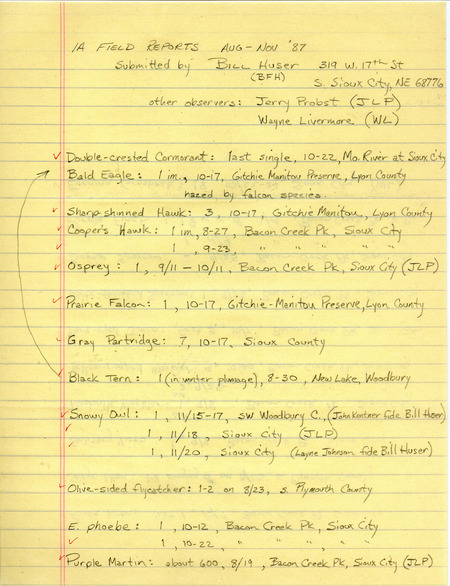 IA FIELD REPORTS AUG-NOV '87
Submitted by BILL HUSER 319 W. 17th St
(BFH) S. Sioux City, NE 68776
other observers: Jerry Probst (JLP)
Wayne Livermore (WL)
Double-crested Cormorant: last single, 10-22, Mo. River at Sioux City
Bald Eagle: 1 im., 10-17, Gitchie Manitou Preserve, Lyon County
hazed by falcon species.
Sharp-shinned Hawk: 3, 10-17, Gitchie Manitou, Lyon County
Cooper's Hawk: 1 im, 8-27, Bacon Creek Pk, Sioux City
1, 9-23, " " " " "
Osprey: 1, 9/11 - 10/11, Bacon Creek Pk, Sioux City (JLP)
Prairie Falcon: 1, 10-17, Gitchie-Manitou Preserve, Lyon County
Gray Partridge: 7, 10-17, Sioux County
Black Tern: 1 (in winter plumage), 8-30, New Lake, Woodbury
Snowy Owl: 1, 11/15-17, SW Woodbury C., (John Kantner fide Bill Huser)
1, 11/18, Sioux City (JLP)
1, 11/20, Sioux City (Layne Johnson fide Bill Huser)
Olive-sided flycatcher: 1-2 on 8/23, S. Plymouth County
E. phoebe: 1, 10-12, Bacon Creek Pk, Sioux City
1, 10-22, " " " " "
Purple Martin: about 600, 8/19, Bacon Creek Pk, Sioux City (JLP)